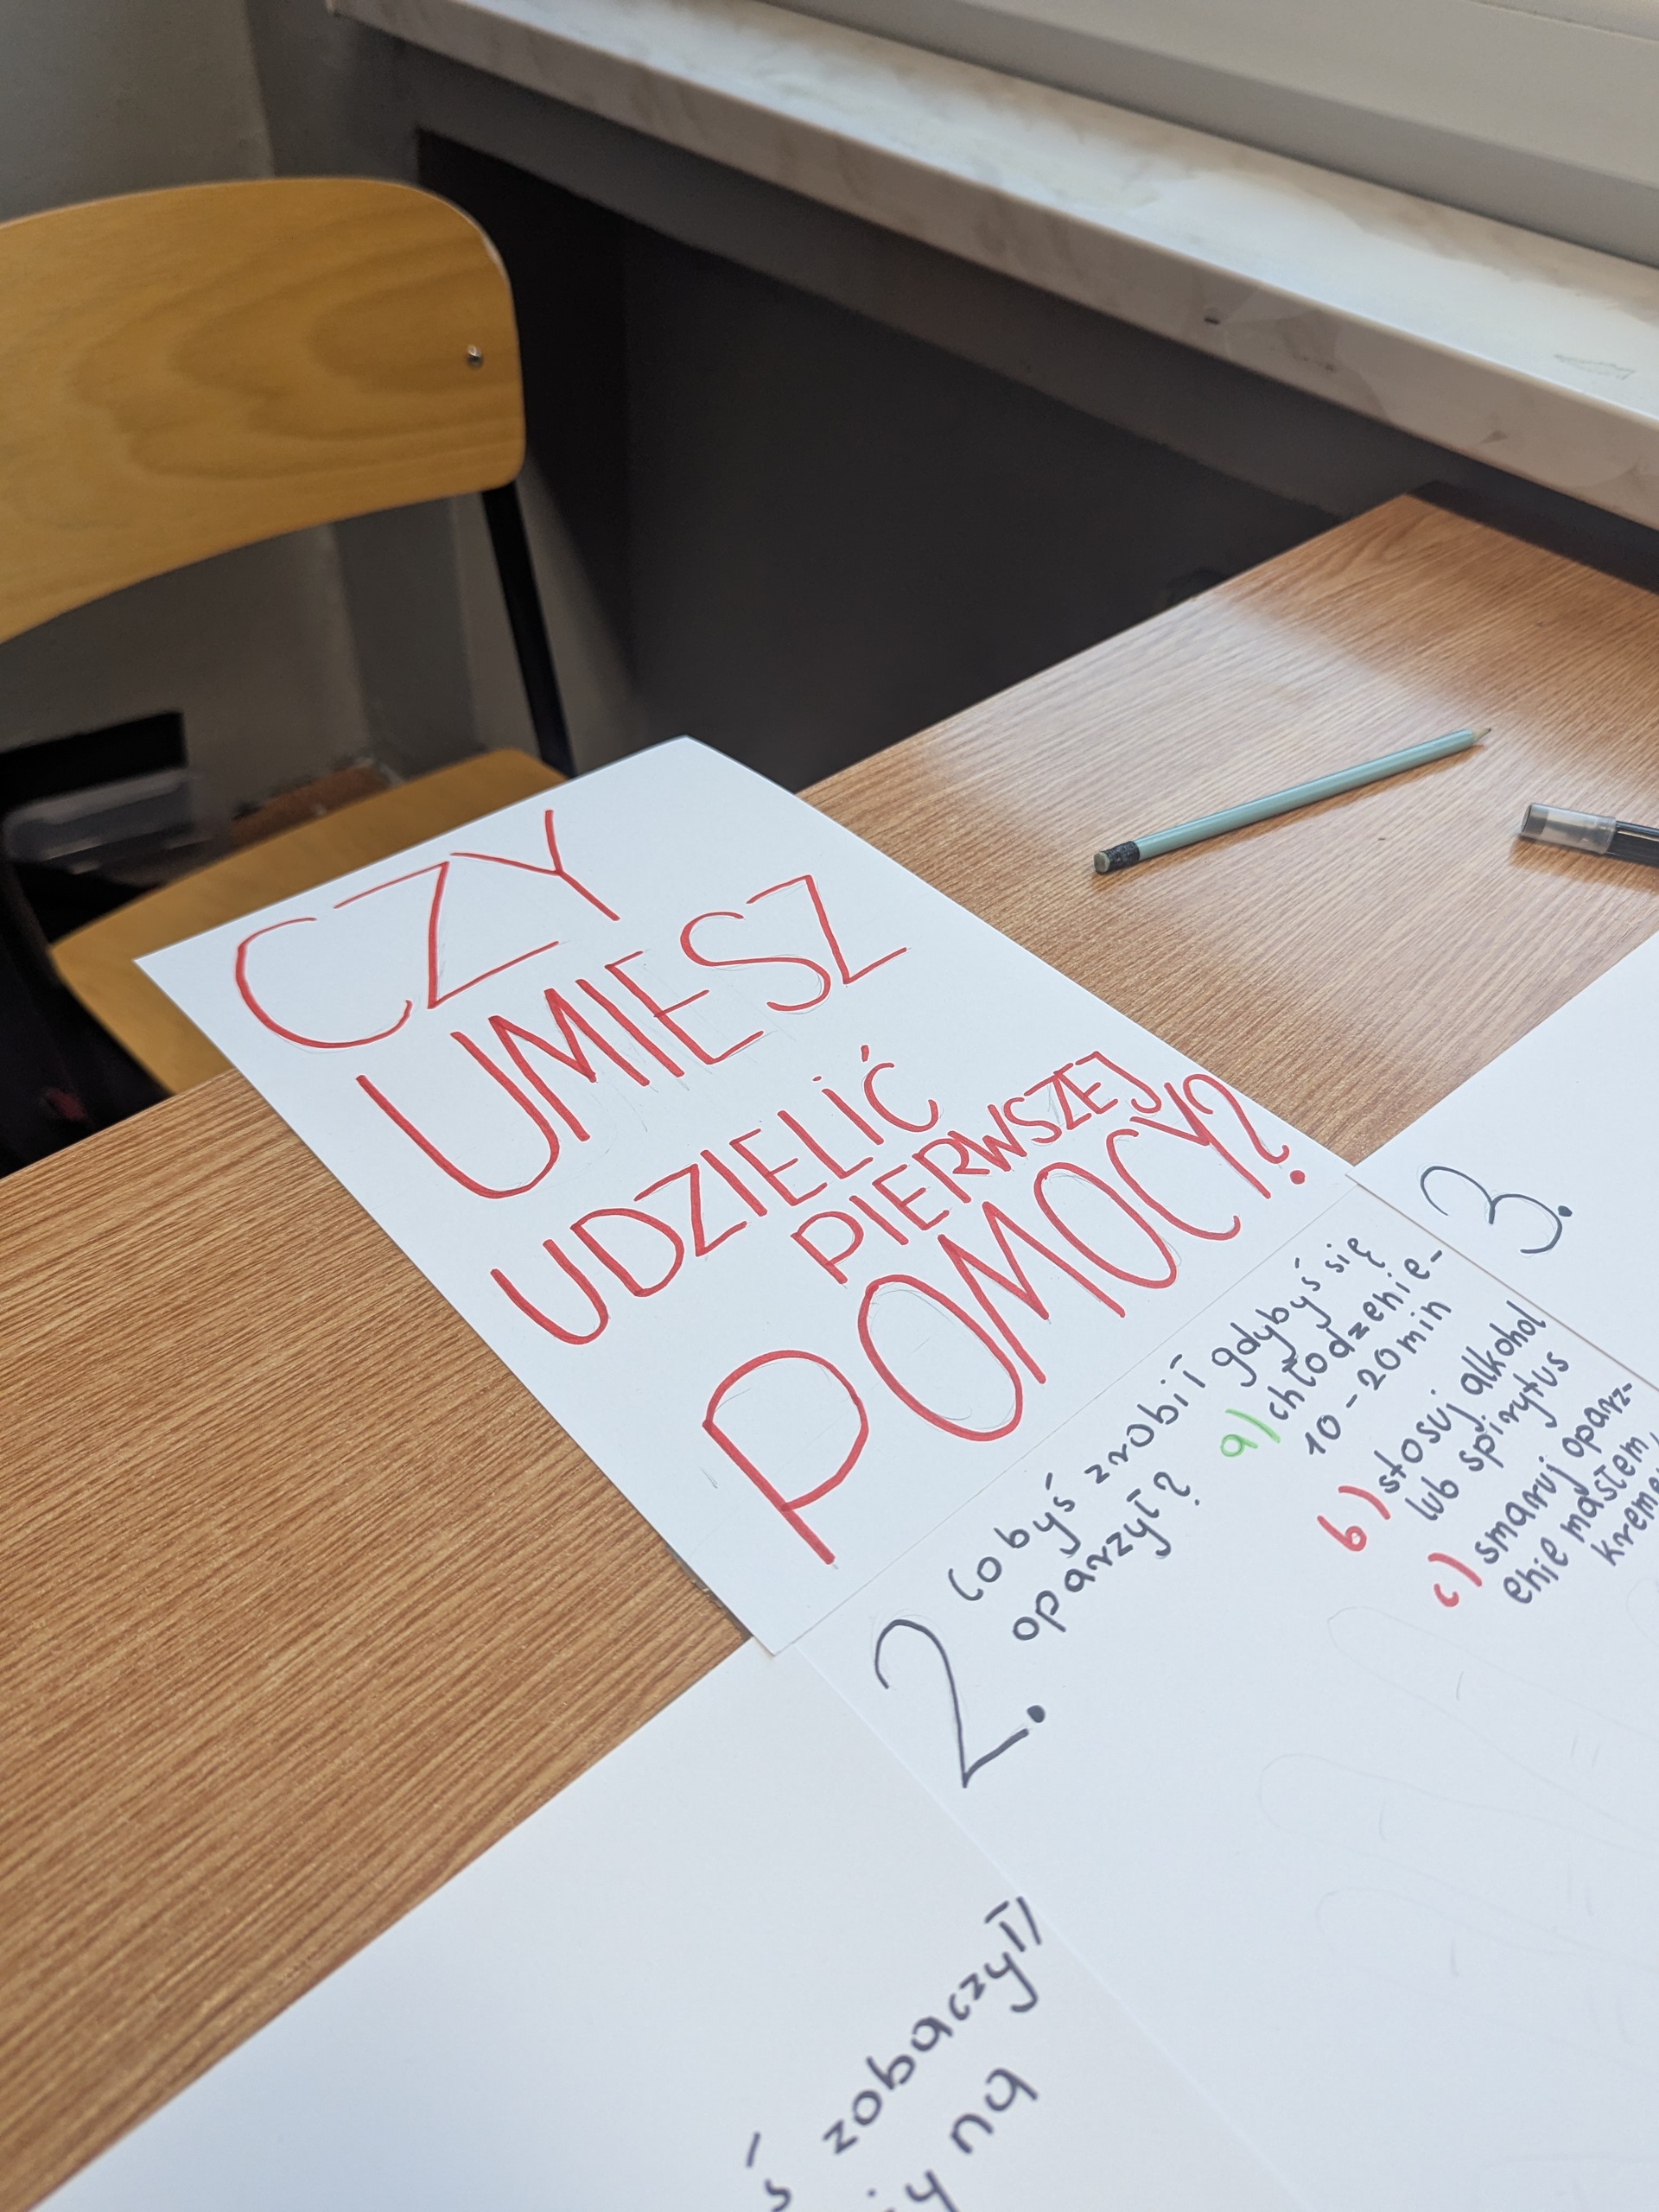 CZY
UMIESZ
UDZIELIĆ
PIERWSZEJ
POMOCY?
2.
Cobyś zrobił gdybyś się
oparzył?
a) chłodzenie-
10-20min
b) stosuj alkohol
lub spirytus
c) smaruj oparz-
enie masłem,
3.
zobaczył
na